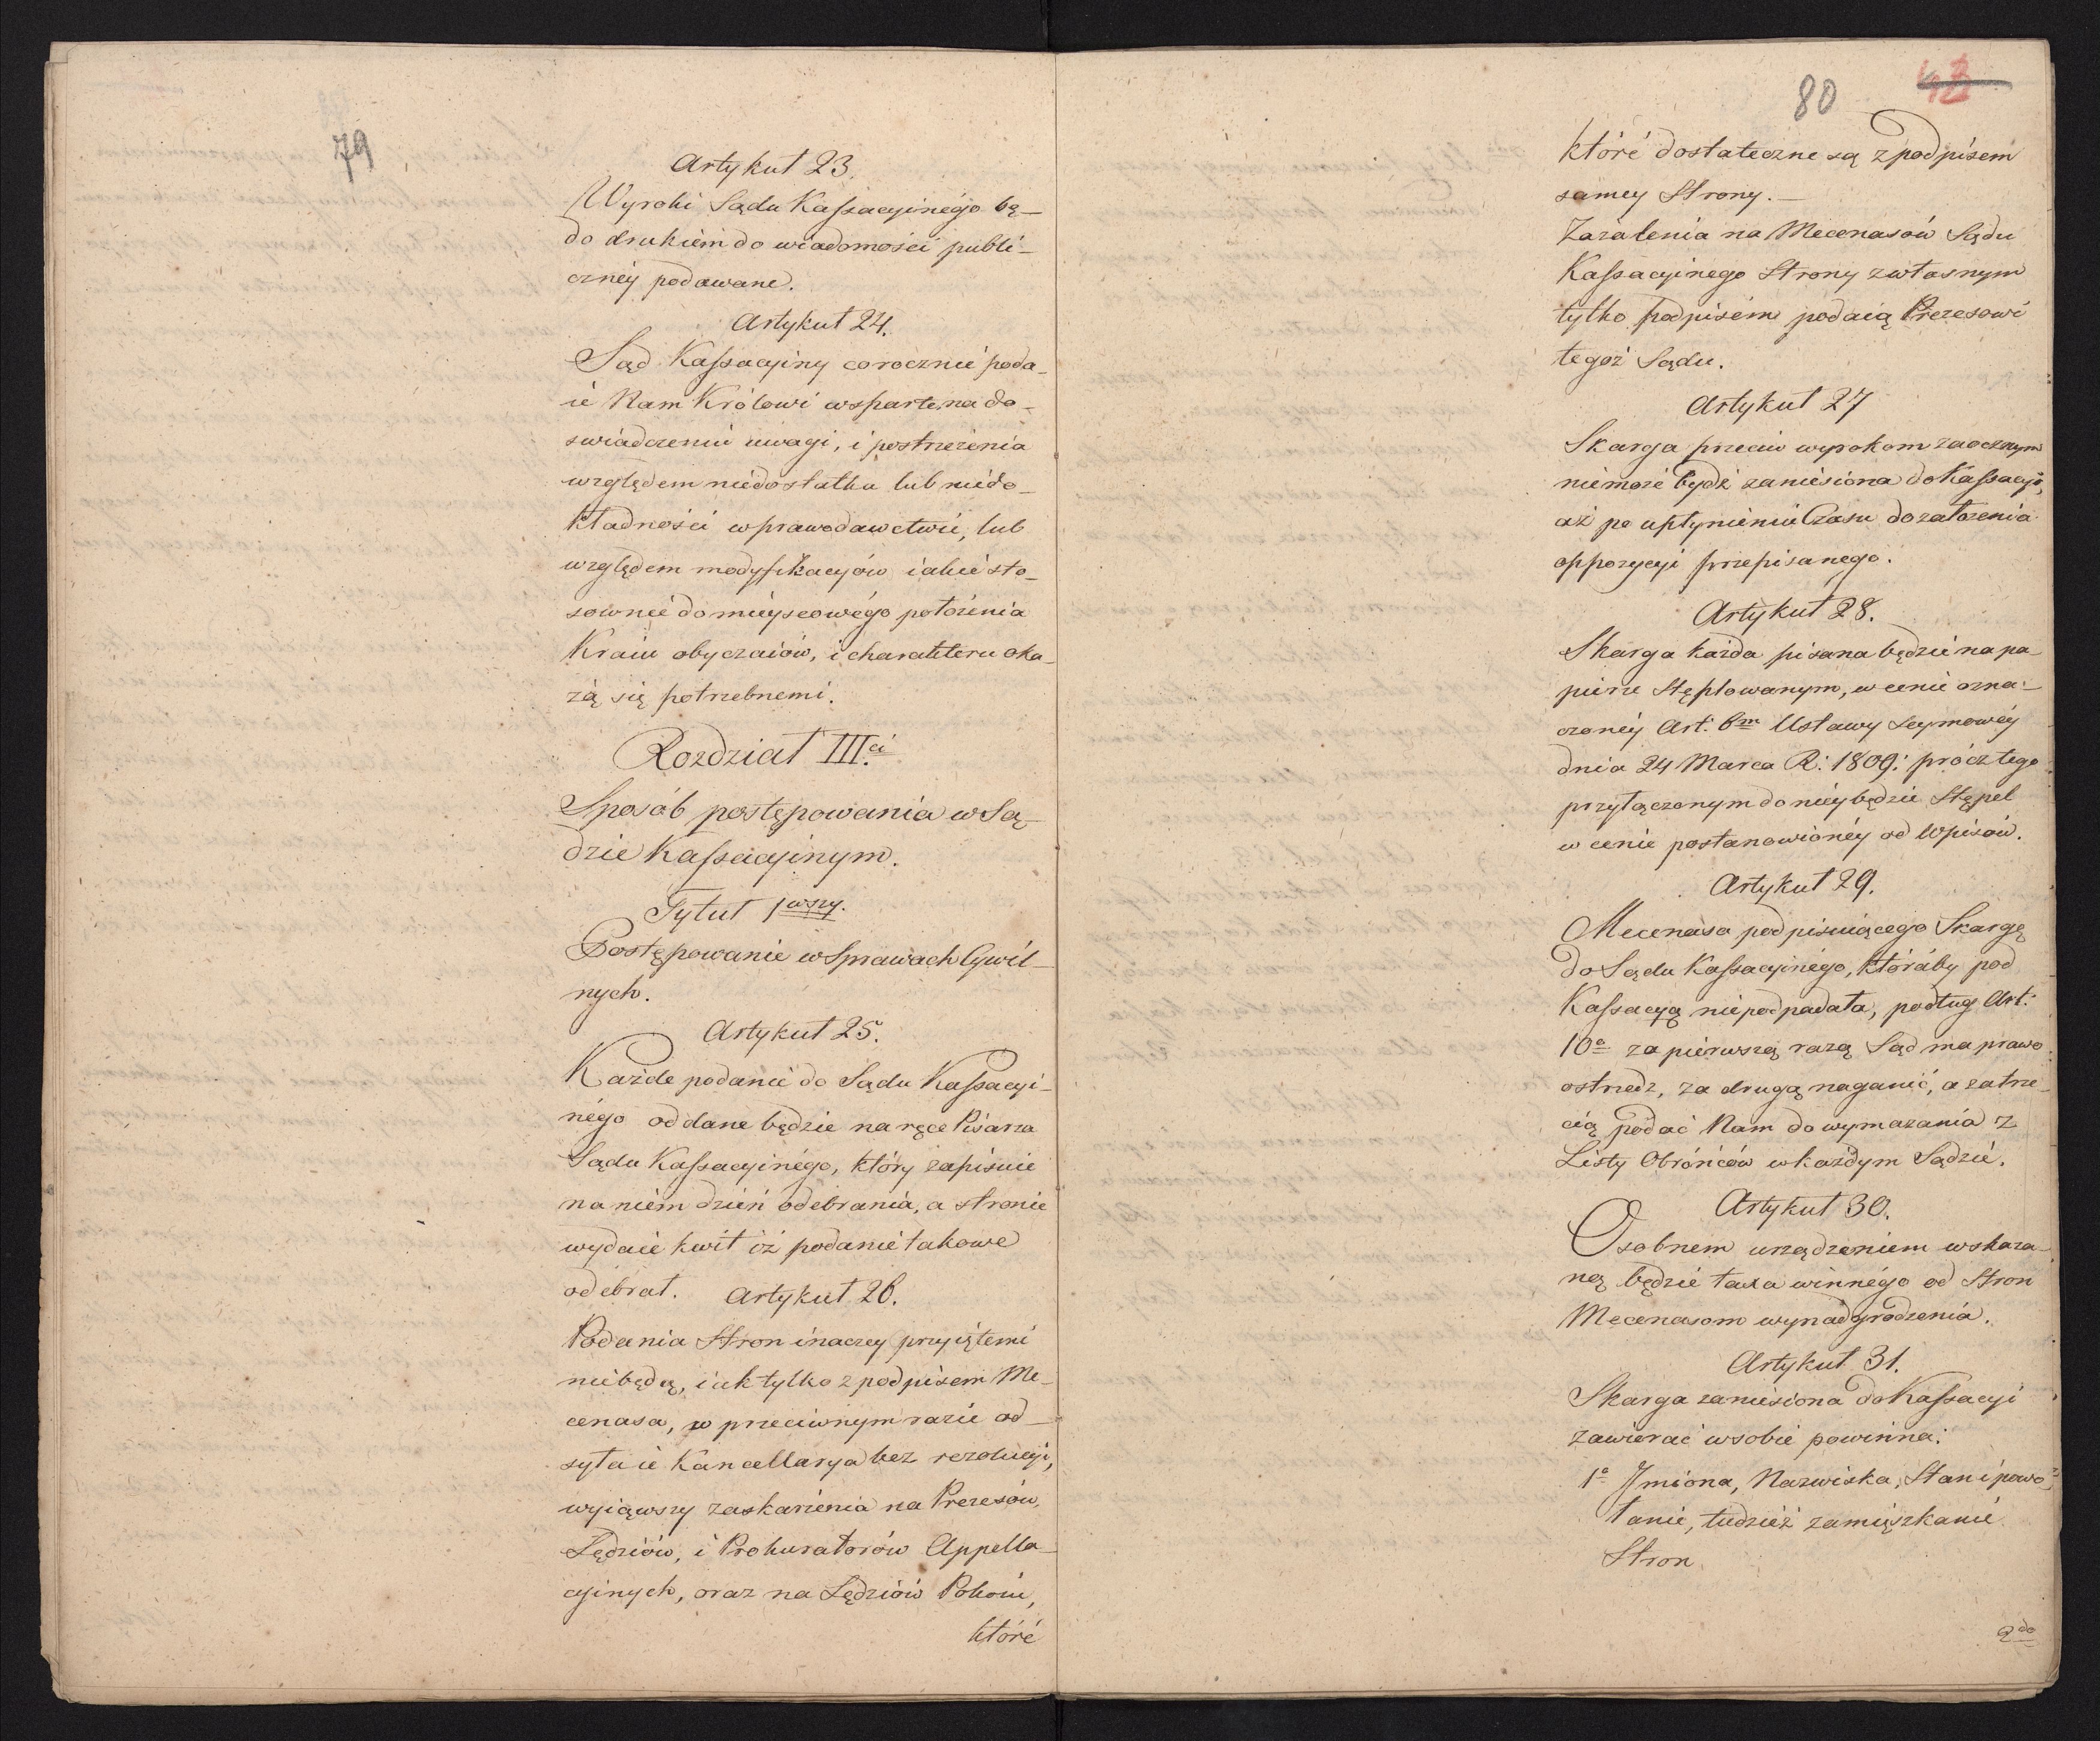 79
Artykuł 23.
Wyroki Sądu Kassacyinégo bę-
do drukiem do wiadomości publi-
cznéy podawane.
Artykuł 24.
Sąd Kassacyiny corocznie poda-
ie Nam Królowi wsparte na do-
swiadczeniu uwagi, i postrzeżenia
względem niedostatku lub niedo-
kładności w prawodawctwie, lub
względem modyfikacyów iakie sto-
sownie do mieyscowégo położenia
Kraiu obyczaiów, i charakteru oka-
żą się potrzebnemi.
Rozdział III.ci
Sposób postępowania w Są-
dzie Kassacyinym.
Tytuł 1wszy.
Postępowanie w Sprawach Cywil-
nych.
Artykuł 25.
Każde podanie do Sądu Kassacyi-
négo oddane będzie na ręce Pisarza
Sądu Kassacyinégo, który zapisuie
na niém dzień odebrania, a stronie
wydaie kwit iż podanie takowe
odebrał. Artykuł 26.
Podania Stron inaczey przyiętemi
nie będą, iak tylko z podpisem Me-
cenasa, w przeciwnym razie od-
syła ie Kancellarya bez rezolucyi,
wyiąwszy zaskarżenia na Prezesów,
Sędziów, i Prokuratorów Appella-
cyinych, oraz na Sędziów Pokoiu,
któré
80
któré dostateczne są z podpisem
samey Strony.-
Zażalenia na Mecenasów Sądu
Kassacyinego Strony z własnym
tylko podpisém podaią Prezesowi
tegoż Sądu.
Artykuł 27
Skarga przeciw wyrokom zaocznym
nie może bydź zaniesiona do Kassacyi,
aż po upłynieniu Czasu do założenia
oppozycyi przepisanego.
Artykuł 28.
Skarga każda pisana będzie na pa-
pierze Stęplowanym, w cenie ozna-
czonéy Art: 6m Ustawy Seymowéy
dnia 24 Marca R: 1809: prócz tego
przyłączonym do niéy będzie Stępel
w cenie postanowionéy od Wpisów.
Artykuł 29.
Mecenasa podpisuiącego Skargę
do Sądu Kassacyinégo, któraby pod
Kassacyą nie podpadała, podług Art:
10o za pierwszą razą Sąd ma prawo
ostrzedz, za drugą naganić, a za trze-
cią podać Nam do wymazania z
Listy Obrońców w każdym Sądzie.
Artykuł 30.
Osobnem urządzeniem wskaza-
ną będzie taxa winnégo od Stron
Mecenasom wynadgrodzenia.
Artykuł 31.
Skarga zaniesiona do Kassacyi
zawierać w sobie powinna:
1o Jmiona, Nazwiska, Stan i powo-
łanie, tudzież zamięszkanie
Stron
2do